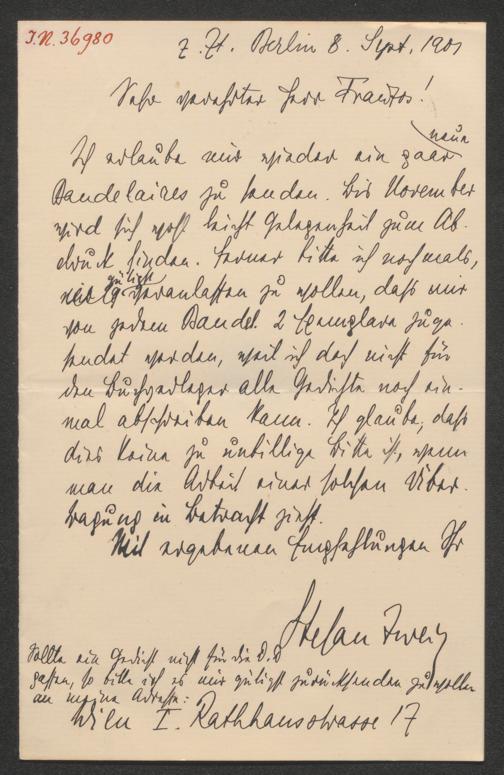 I.N. 36980
z. Zt. Berlin 8. Sept. 1901
Sehr verehrter Herr Franzos!
neue
Ich erlaube mir wieder ein paar
Baudelaires zu senden. Bis November
wird sich wohl leicht Gelegenheit zum Ab-
druck finden. Ferner bitte ich nochmals,
gütigst
veranlassen zu wollen, daß mir
von jedem Baudel. 2 Exemplare zuge-
sendet werden, weil ich doch nicht für
den Buchverleger alle Gedichte noch ein-
mal abschreiben kann. Ich glaube, daß
dies keine zu unbillige Bitte ist, wenn
man die Arbeit einer solchen Über-
tragung in Betracht zieht.
Mit ergebenen Empfehlungen Ihr
Stefan Zweig
Sollte ein Gedicht nicht für die D.D
passen, so bitte ich es mir gütigst zurücksenden zu wollen
an meine Adresse:
Wien I. Rathhausstrasse 17